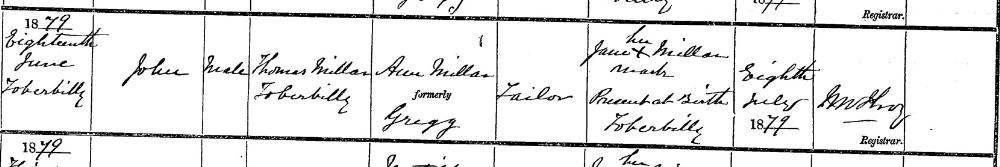 1877
Registrar.
1879
Eighteenth
June
Toberbilly
John
Male
Thomas Millar
Toberbilly
Ann Millar
formerly
Gregg
Tailor
her
Jane X Millar
mark
Present at Birth
Toberbilly
Eighth
July
1879
Registrar.
1879
her